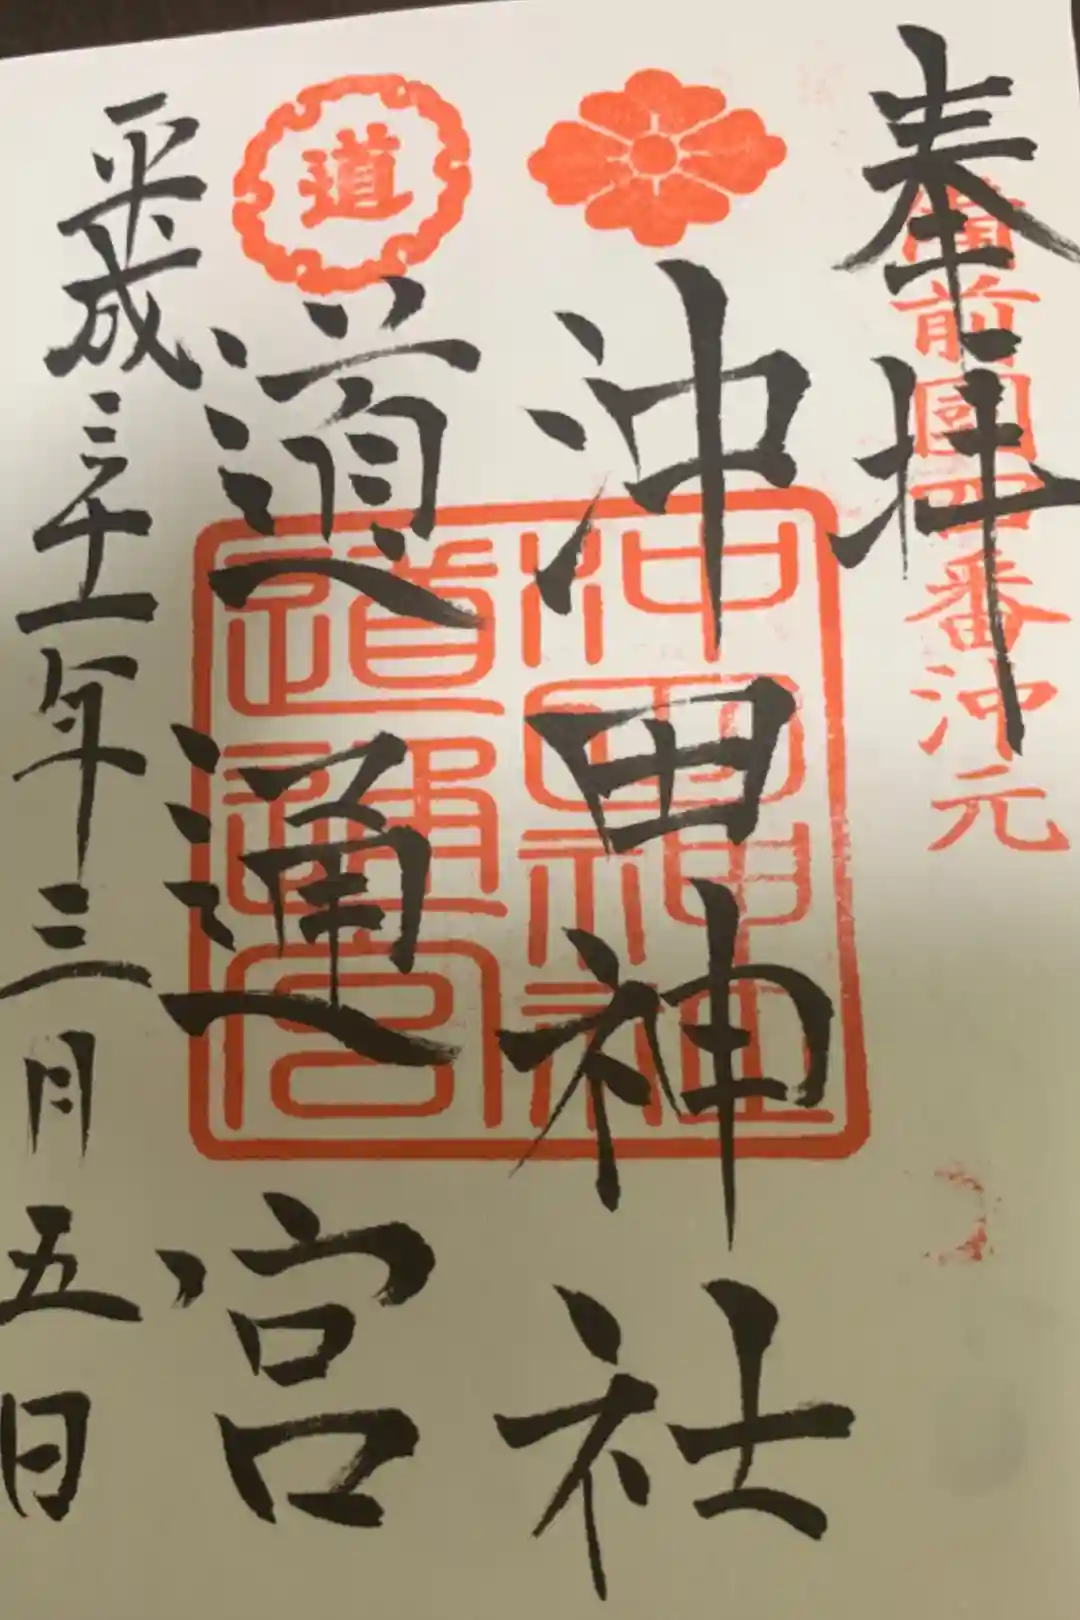 奉拝
備前國四番沖元
沖田神社
道
道通宮
沖田神社
道通宮
平成三十一年三月五日